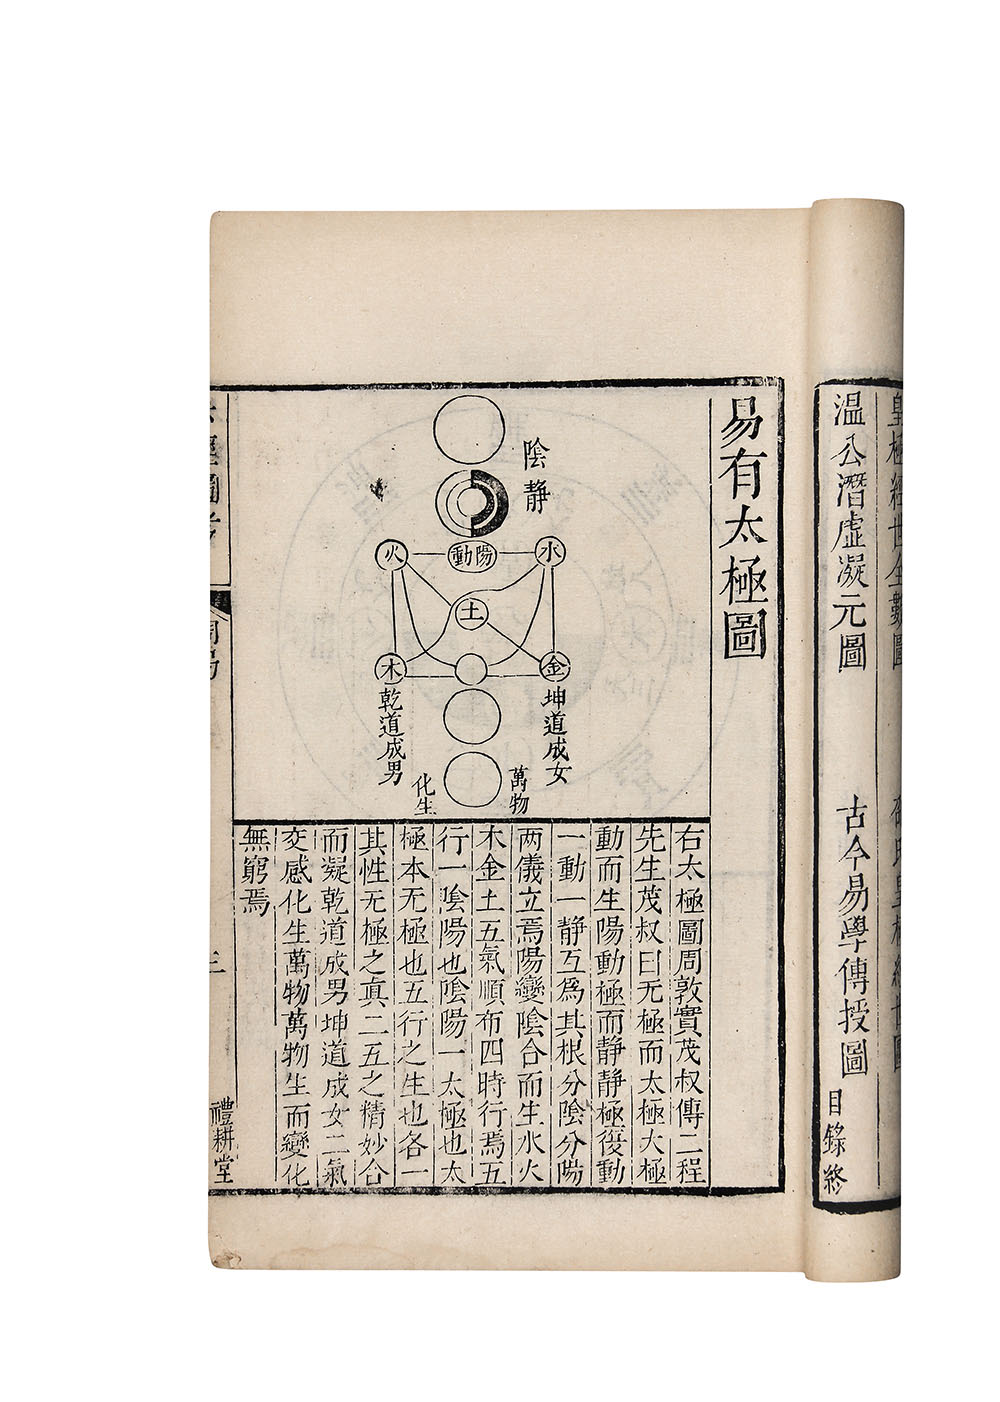 皇極經世全數圖
邵氏皇極經世圖
溫公潛虛凝元圖
古今易學傳授圖
目錄終
易有太極圖
陰静
陽動
火
水
土
木
金
乾道成男
坤道成女
萬物
化生
右太極圖周敦實茂叔傳二程
先生茂叔曰无極而太極太極
動而生陽動極而静静極復動
一動一静互爲其根分陰分陽
两儀立焉陽變陰合而生水火
木金土五氣順布四時行焉五
行一陰陽也陰陽一太極也太
極本无極也五行之生也各一
其性无極之真二五之精妙合
而凝乾道成男坤道成女二氣
交感化生萬物萬物生而變化
無窮焉
六經圖考
周易
三
禮耕堂